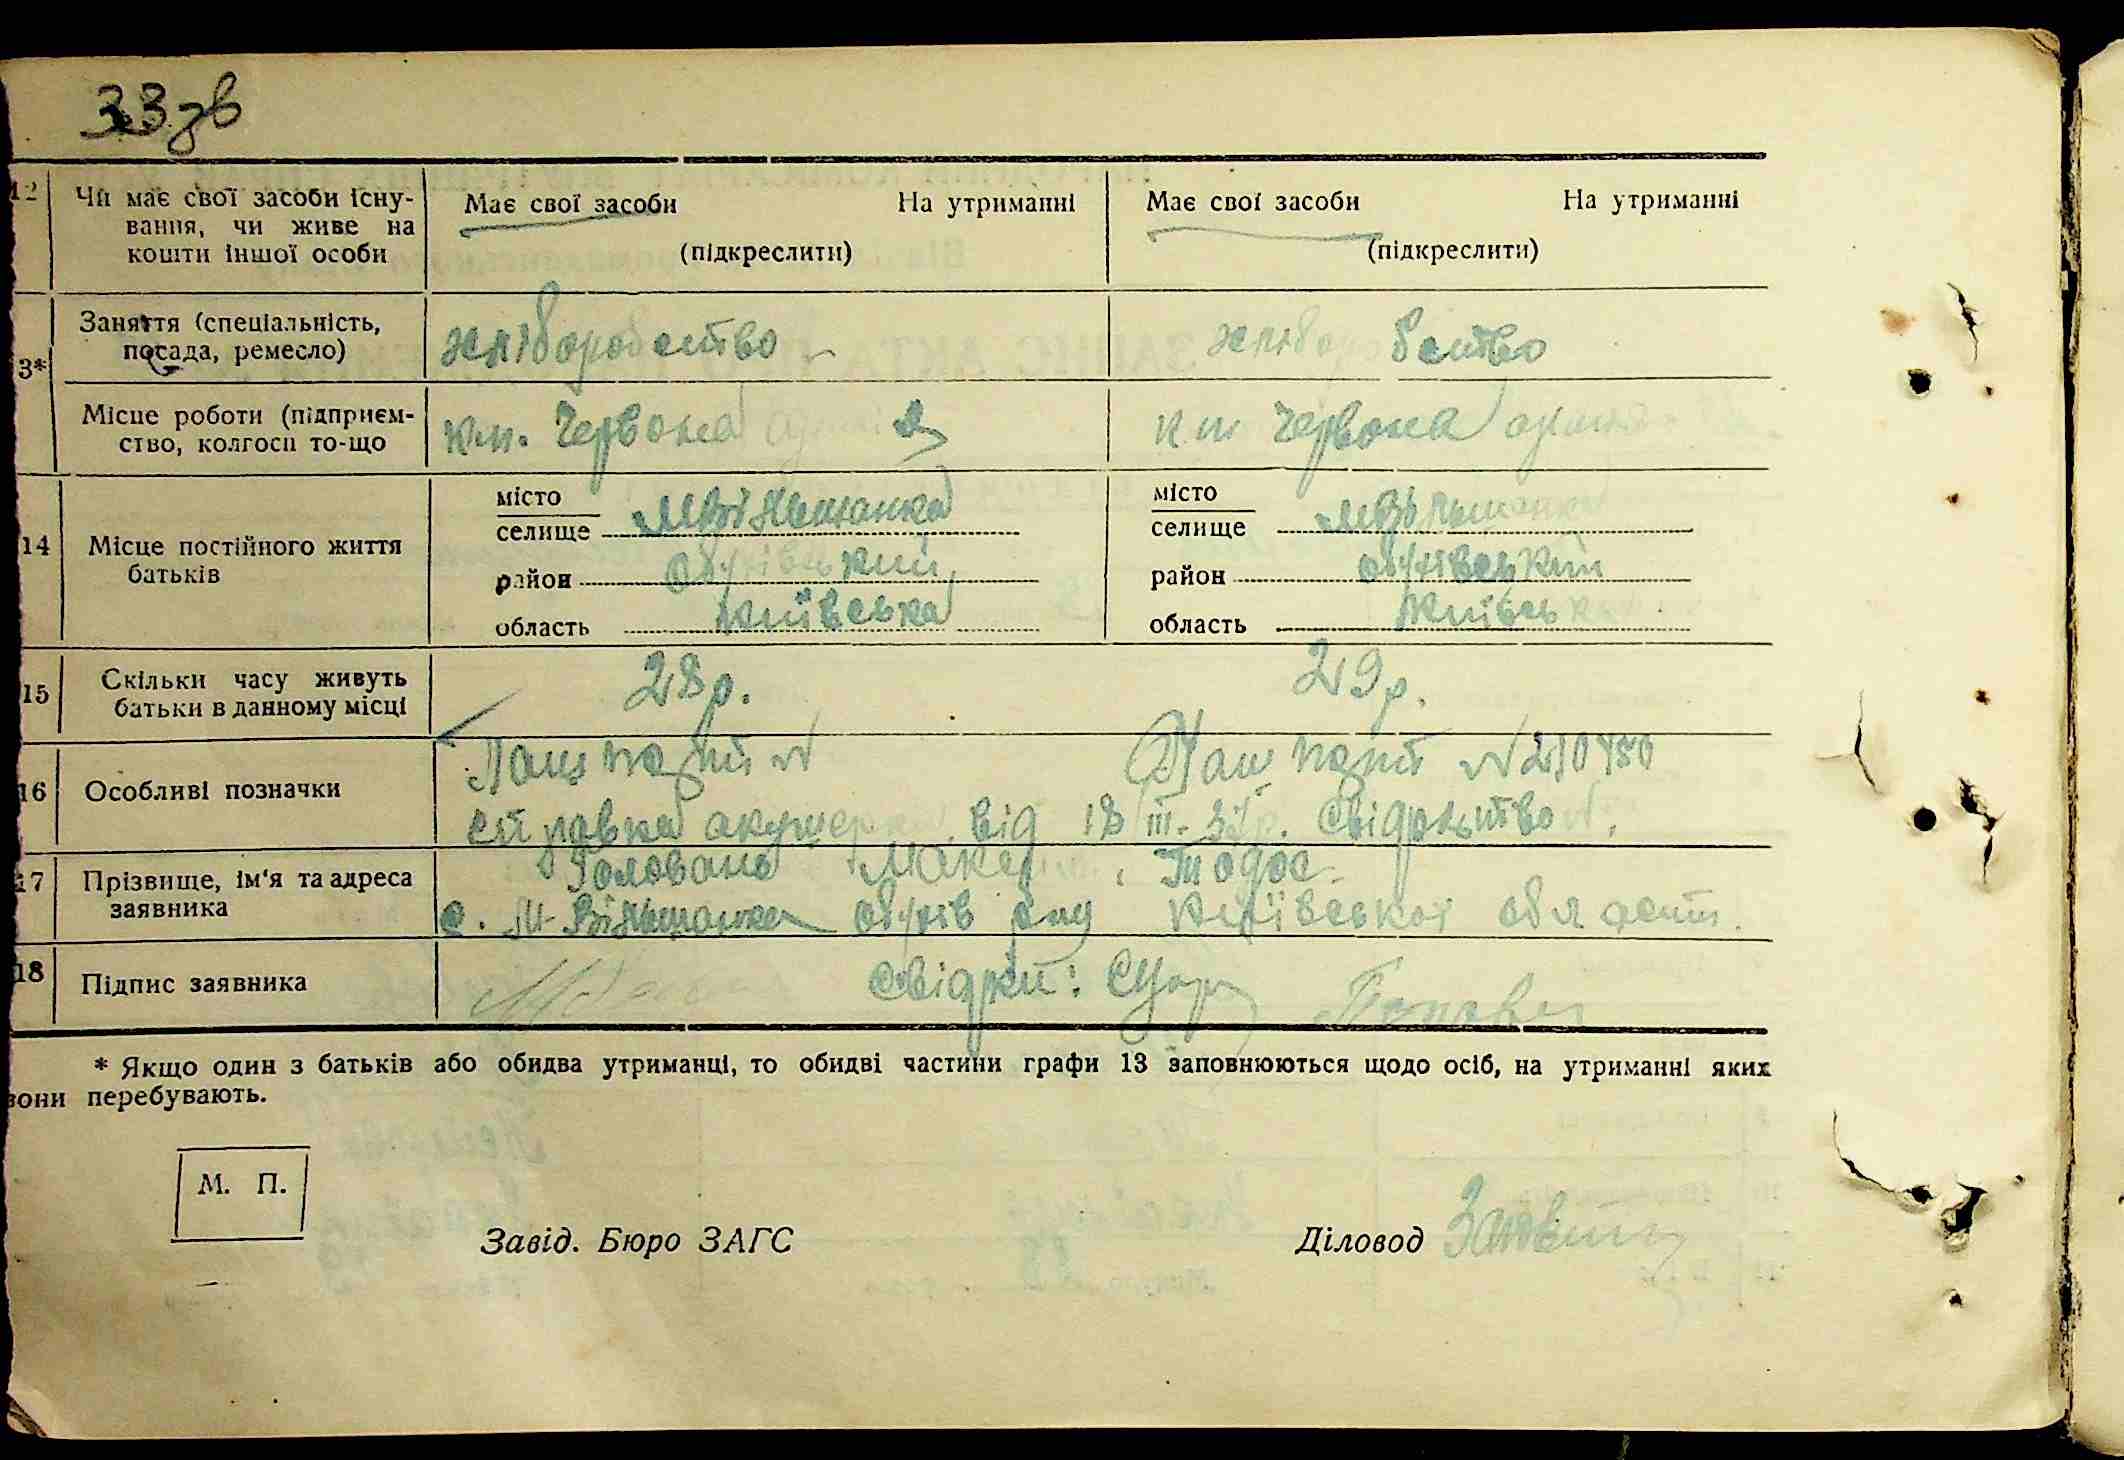 33 зв
12 Чи має свої засоби існу- Має свої засоби На утриманні Має свої засоби На утриманні
вання, чи живе на
кошти іншої особи (підкреслити) (підкреслити)
Заняття (спеціальність,
посада, ремесло) хліборобство хліборобство
3*
Місце роботи (підприєм- к-п. Червона к п Червона
ство, колгосп то-що
місто місто
селище М Вільшанка селище М Вільшанка
14 Місце постійного життя
батьків район обухівський район обухівський
область Київська область Київська
15 Скільки часу живуть 28 р. 29 р.
батьки в данному місці
Пашпорт № Пашпорт №
16 Особливі позначки
справка акушерки від 18/III. 37р. Свідоцтво №.
17 Прізвище, ім'я та адреса Головань Тодос.
заявника с. М-Вільшанка обухів р-ну Київської області.
18 Підпис заявника свідки:
* Якщо один з батьків або обидва утриманці, то обидві частини графи 13 заповнюються щодо осіб, на утриманні яких
вони перебувають.
М. П.
Завід. Бюро ЗАГС Діловод